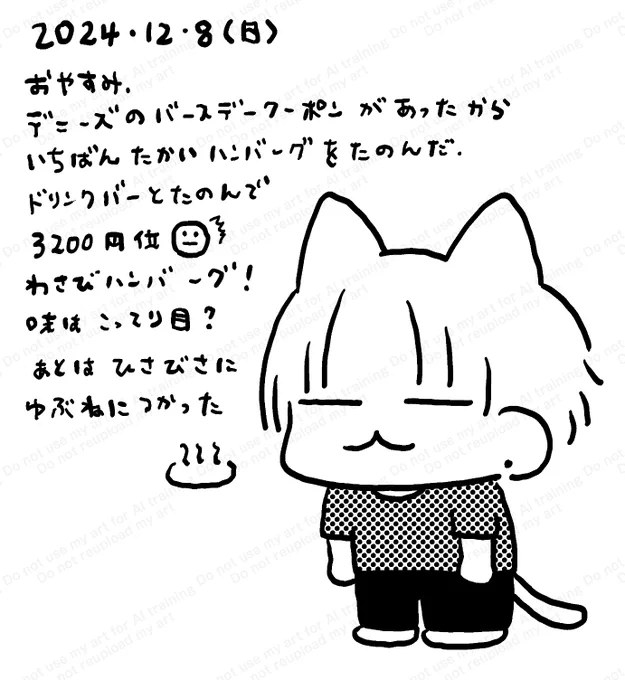 2024.12.8(日)
おやすみ.
デニーズのバースデークーポンがあったから
いちばんたかいハンバーグをたのんだ.
ドリンクバーとたのんで
3200円位
わさびハンバーグ!
味はこってり目?
あとはひさびさに
ゆぶねにつかった
Do not use my art for AI training
Do not reupload my art